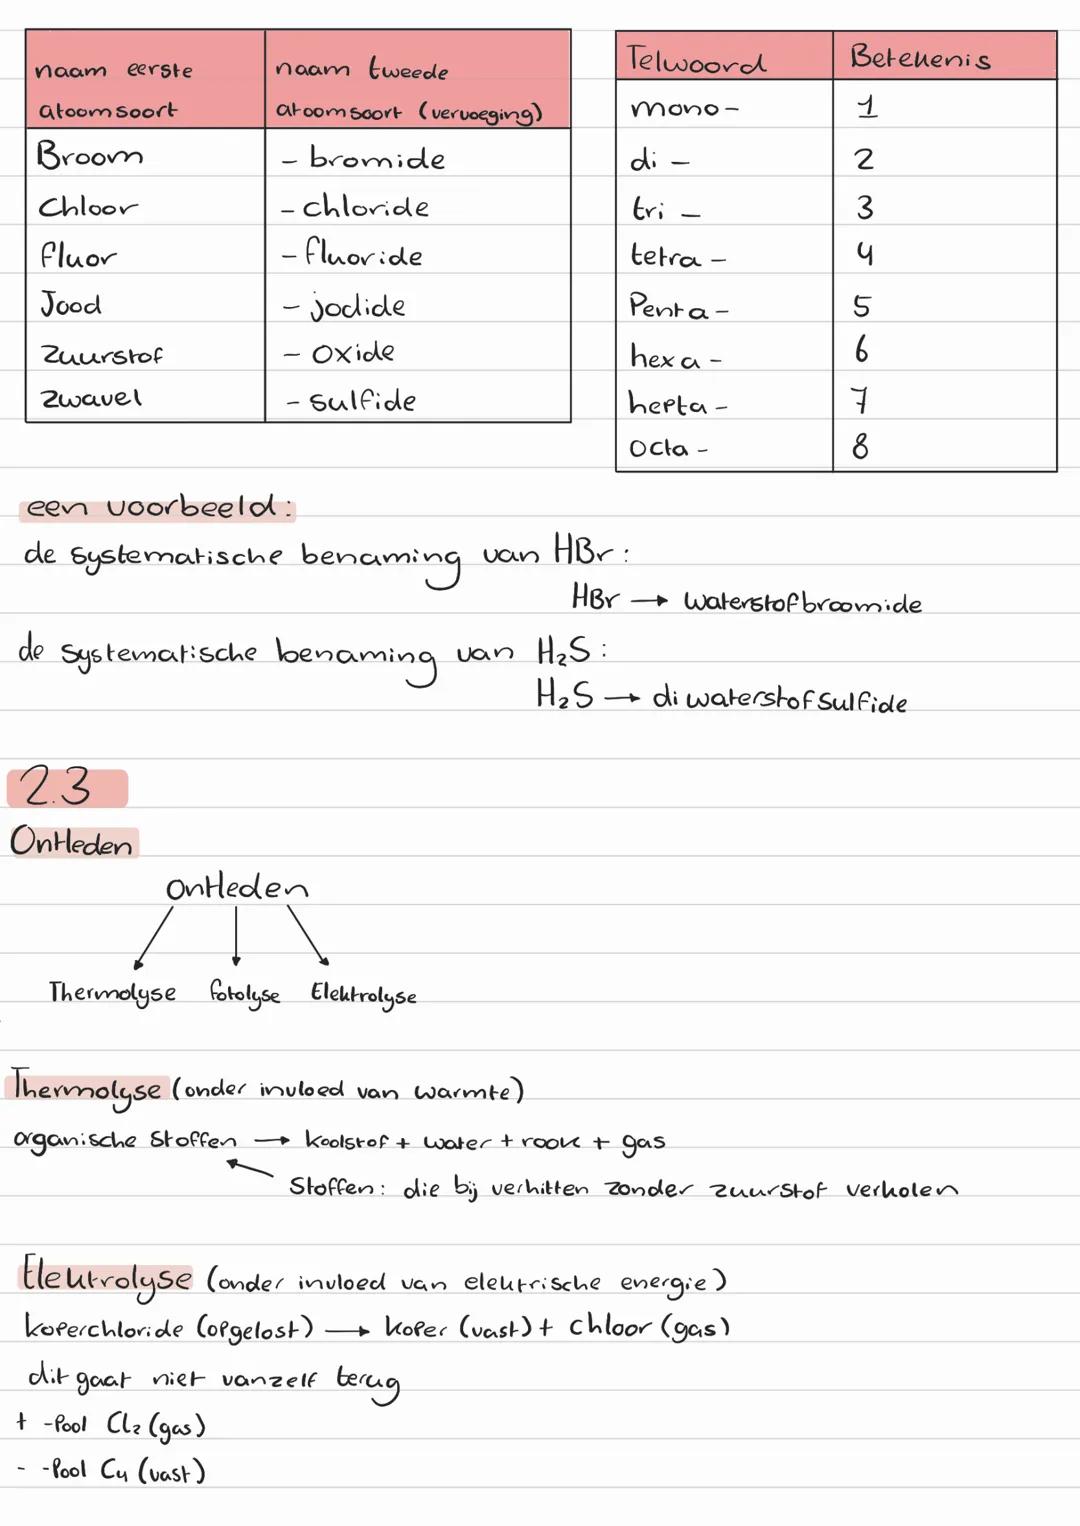 naam eerste atoomsoort | naam tweede atoomsoort (vervoeging)
Broom | - bromide
Chloor | - chloride
fluor | - fluoride
Jood | - jodide
zuurstof | - oxide
zwavel | - sulfide
Telwoord | Betekenis
mono- | 1
di - | 2
tri - | 3
tetra - | 4
Penta - | 5
hexa - | 6
hepta - | 7
octa - | 8
een voorbeeld:
de systematische benaming van HBr:
HBr → waterstofbroomide
de systematische benaming van H₂S:
H₂S → diwaterstofsulfide
2.3
Ontleden
ontleden
Thermolyse fotolyse Elektrolyse
Thermolyse (onder invloed van warmte)
organische stoffen → koolstof + water + rook + gas
Stoffen: die bij verhitten zonder zuurstof verkolen
Elektrolyse (onder invloed van elektrische energie)
koperchloride (opgelost) → koper (vast) + chloor (gas)
dit gaat niet vanzelf terug
+ -Pool Cl₂ (gas)
- -Pool Cu (vast)